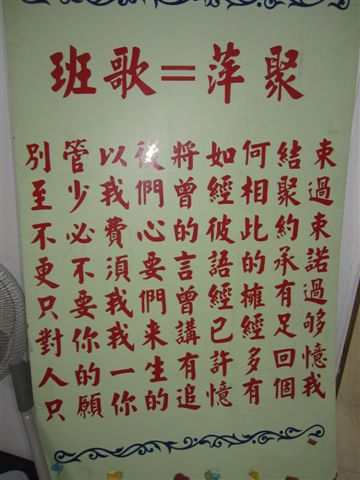 班歌=萍聚
別管以後將如何結束
至少我們曾經相聚過
不必費心的彼此約束
更不須要言語的承諾
只要我們曾經擁有過
對你我來講已經足够
人的一生有許多回憶
只願你的追憶有個我